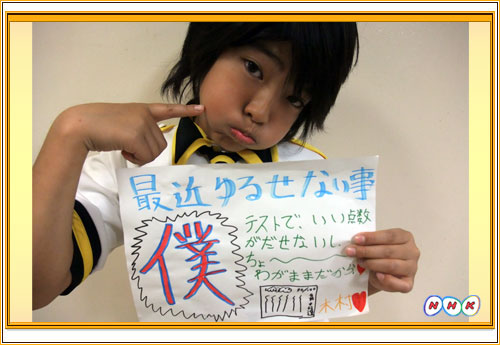 最近ゆるせない事
僕
テストで、いい点数
がだせないし、
ちょ〜
わがままだから
木村
NHK